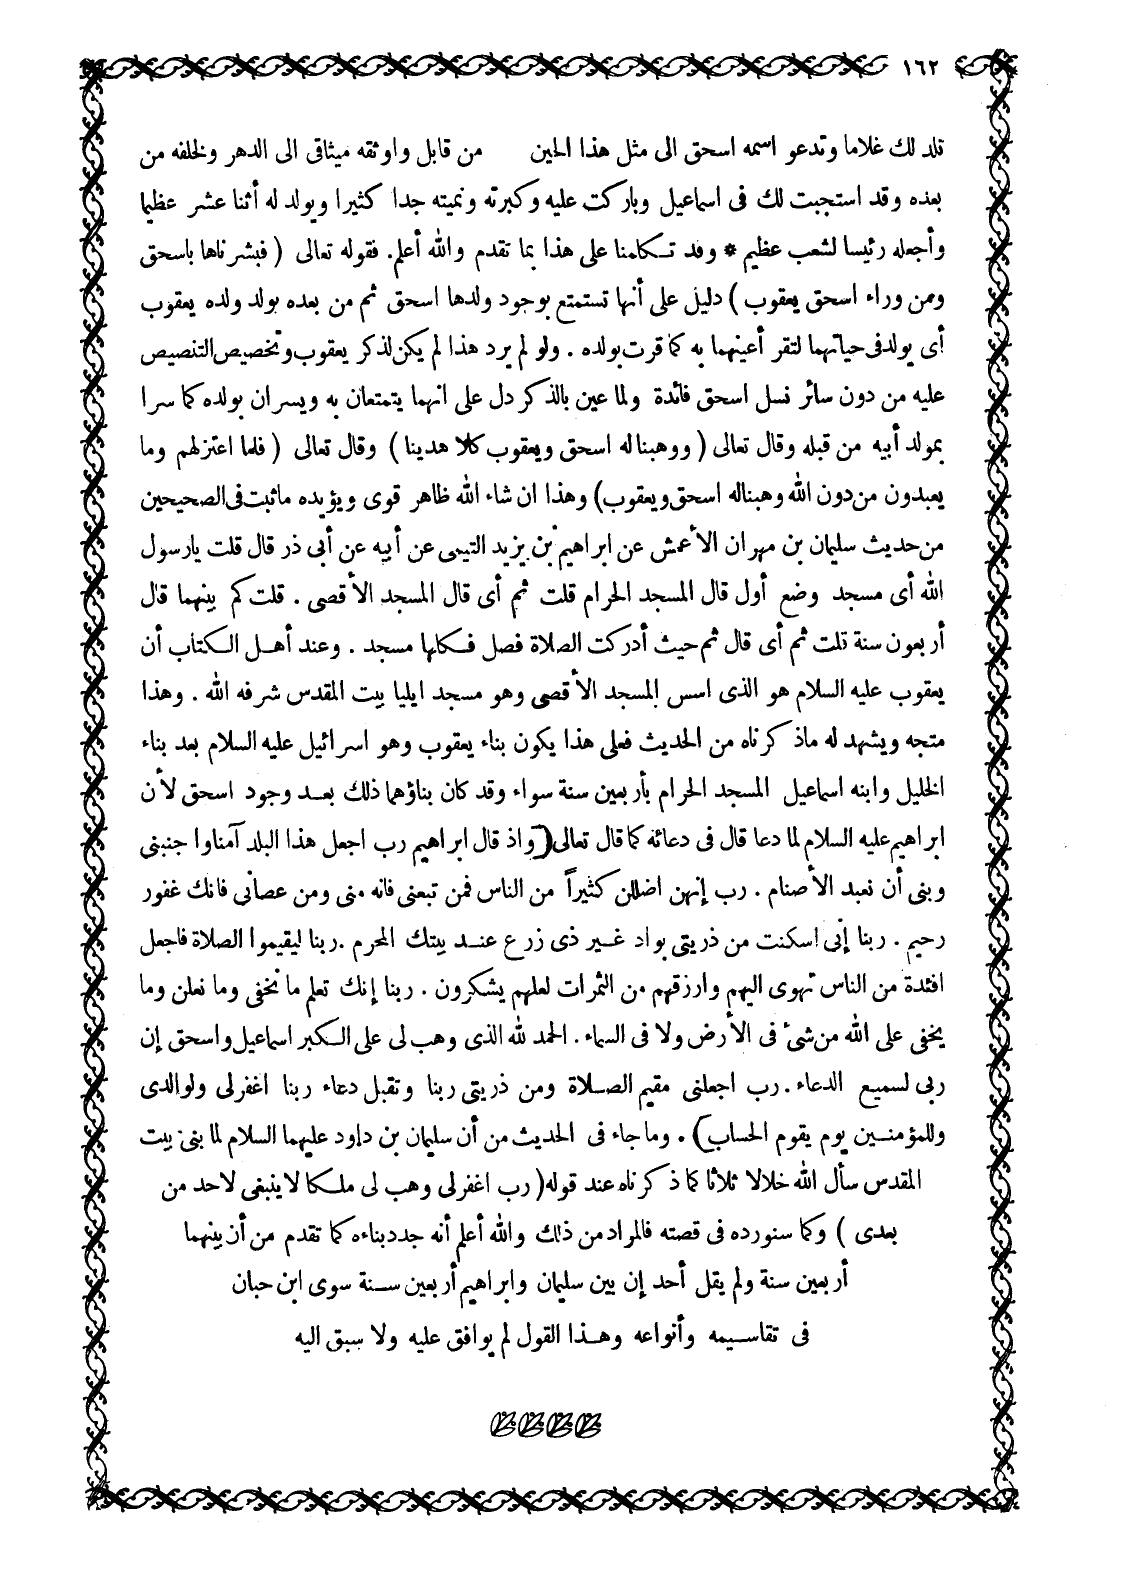 ١٦٢
تلد لك غلاما وتدعو اسمه اسحق الى مثل هذا الحين من قابل واوثقه ميثاقى الى الدهر ولخلفه من
بعده وقد استجبت لك فى اسماعيل وباركت عليه وكبرته ونميته جدا كثيرا ويولد له أثنا عشر عظيما
وأجعله رئيسا لشعب عظيم * وقد تكلمنا على هذا بما تقدم والله أعلم. فقوله تعالى ( فبشرناها باسحق
ومن وراء اسحق يعقوب ) دليل على أنها تستمتع بوجود ولدها اسحق ثم من بعده بولد ولده يعقوب
أى يولد فى حياتهما لتقر أعينهما به كما قرت بولده . ولو لم يرد هذا لم يكن لذكر يعقوب وتخصيص التنصيص
عليه من دون سائر نسل اسحق فائدة ولما عين بالذكر دل على انهما يتمتعان به ويسران بولده كما سرا
بمولد أبيه من قبله وقال تعالى ( ووهبنا له اسحق ويعقوب كلا هدينا ) وقال تعالى ( فلما اعتزلهم وما
يعبدون من دون الله وهبناله اسحق ويعقوب) وهذا ان شاء الله ظاهر قوى ويؤيده ماثبت فى الصحيحين
من حديث سليمان بن مهران الأعمش عن ابراهيم بن يزيد التيمى عن أبيه عن أبى ذر قال قلت يارسول
الله أى مسجد وضع أول قال المسجد الحرام قلت ثم أى قال المسجد الأقصى . قلت كم بينهما قال
أربعون سنة قلت ثم أى قال ثم حيث أدركت الصلاة فصل فكلها مسجد . وعند أهل الكتاب أن
يعقوب عليه السلام هو الذى اسس المسجد الأقصى وهو مسجد ايليا بيت المقدس شرفه الله . وهذا
متجه ويشهد له ماذكرناه من الحديث فعلى هذا يكون بناء يعقوب وهو اسرائيل عليه السلام بعد بناء
الخليل وابنه اسماعيل المسجد الحرام بأربعين سنة سواء وقد كان بناؤهما ذلك بعد وجود اسحق لأن
ابراهيم عليه السلام لما دعا قال فى دعائه كما قال تعالى (واذ قال ابراهيم رب اجعل هذا البلد آمناوا جنبنى
وبنى أن نعبد الأصنام . رب إنهن اضللن كثيراً من الناس فمن تبعنى فانه منى ومن عصانى فانك غفور
رحيم . ربنا إنى اسكنت من ذريتى بواد غير ذى زرع عند بيتك المحرم .ربنا ليقيموا الصلاة فاجعل
افئدة من الناس تهوى اليهم وارزقهم من الثمرات لعلهم يشكرون . ربنا إنك تعلم ما نخفى وما نعلن وما
يخفى على الله من شئ فى الأرض ولا فى السماء . الحمد لله الذى وهب لى على الكبر اسماعيل واسحق إن
ربى لسميع الدعاء . رب اجعلنى مقيم الصلاة ومن ذريتى ربنا وتقبل دعاء ربنا اغفرلى ولوالدى
وللمؤمنين يوم يقوم الحساب) . وماجاء فى الحديث من أن سليمان بن داود عليهما السلام لما بنى بيت
المقدس سأل الله خلالا ثلاثا كما ذكرناه عند قوله ( رب اغفرلى وهب لى ملكا لاينبغى لاحد من
بعدى ) وكما سنورده فى قصته فالمراد من ذلك والله أعلم أنه جدد بناءه كما تقدم من أن بينهما
أربعين سنة ولم يقل أحد إن بين سليمان وابراهيم أربعين سنة سوى ابن حبان
فى تقاسيمه وأنواعه وهذا القول لم يوافق عليه ولا سبق اليه